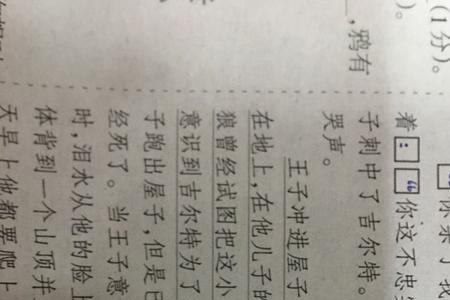 (1分)。
)。
，鸦有
你杀了我
着：“你这不忠
子刺中了吉尔特。
哭声。
王子冲进屋子
在地上，在他儿子的
狼曾经试图把这小
意识到吉尔特为了
子跑出屋子，但是已
经死了。当王子意
时，泪水从他的脸上
体背到一个山顶并
天早上他都要爬上